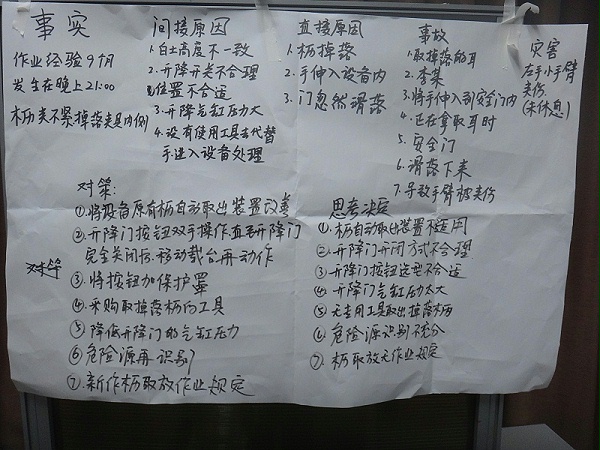 事实
作业经验9个月
发生在晚上21:00
枥夹不紧掉落夹具内侧
间接原因
1.白土高度不一致
2.开降开关不合理
位置不合适
3.开降气缸压力大
4.没有使用工具去代替
手进入设备处理
直接原因
1.枥掉落
2.手伸入设备内
3.门忽然滑落
事故
1.取掉落的耳
2.李某
3.将手伸入到安全门内
4.正在拿取耳时
5.安全门
6.滑落下来
7.导致手臂被夹伤
灾害
左手小手臂
夹伤
(未休息)
对策:
①将设备原有枥自动取出装置改善
②开降门按钮双手操作直至开降门
完全关闭后,移动载台再动作
对策
③将按钮加保护罩
④采购取掉落枥的工具
⑤降低开降门的气缸压力
⑥危险源再识别
⑦新作枥取放作业规定
思考决定
①枥自动取出装置不适用
②开降门开闭方式不合理
③开降门按钮选型不合适
④开降门气缸压力太大
⑤无专用工具取出掉落枥
⑥危险源识别不充分
⑦枥取放无作业规定